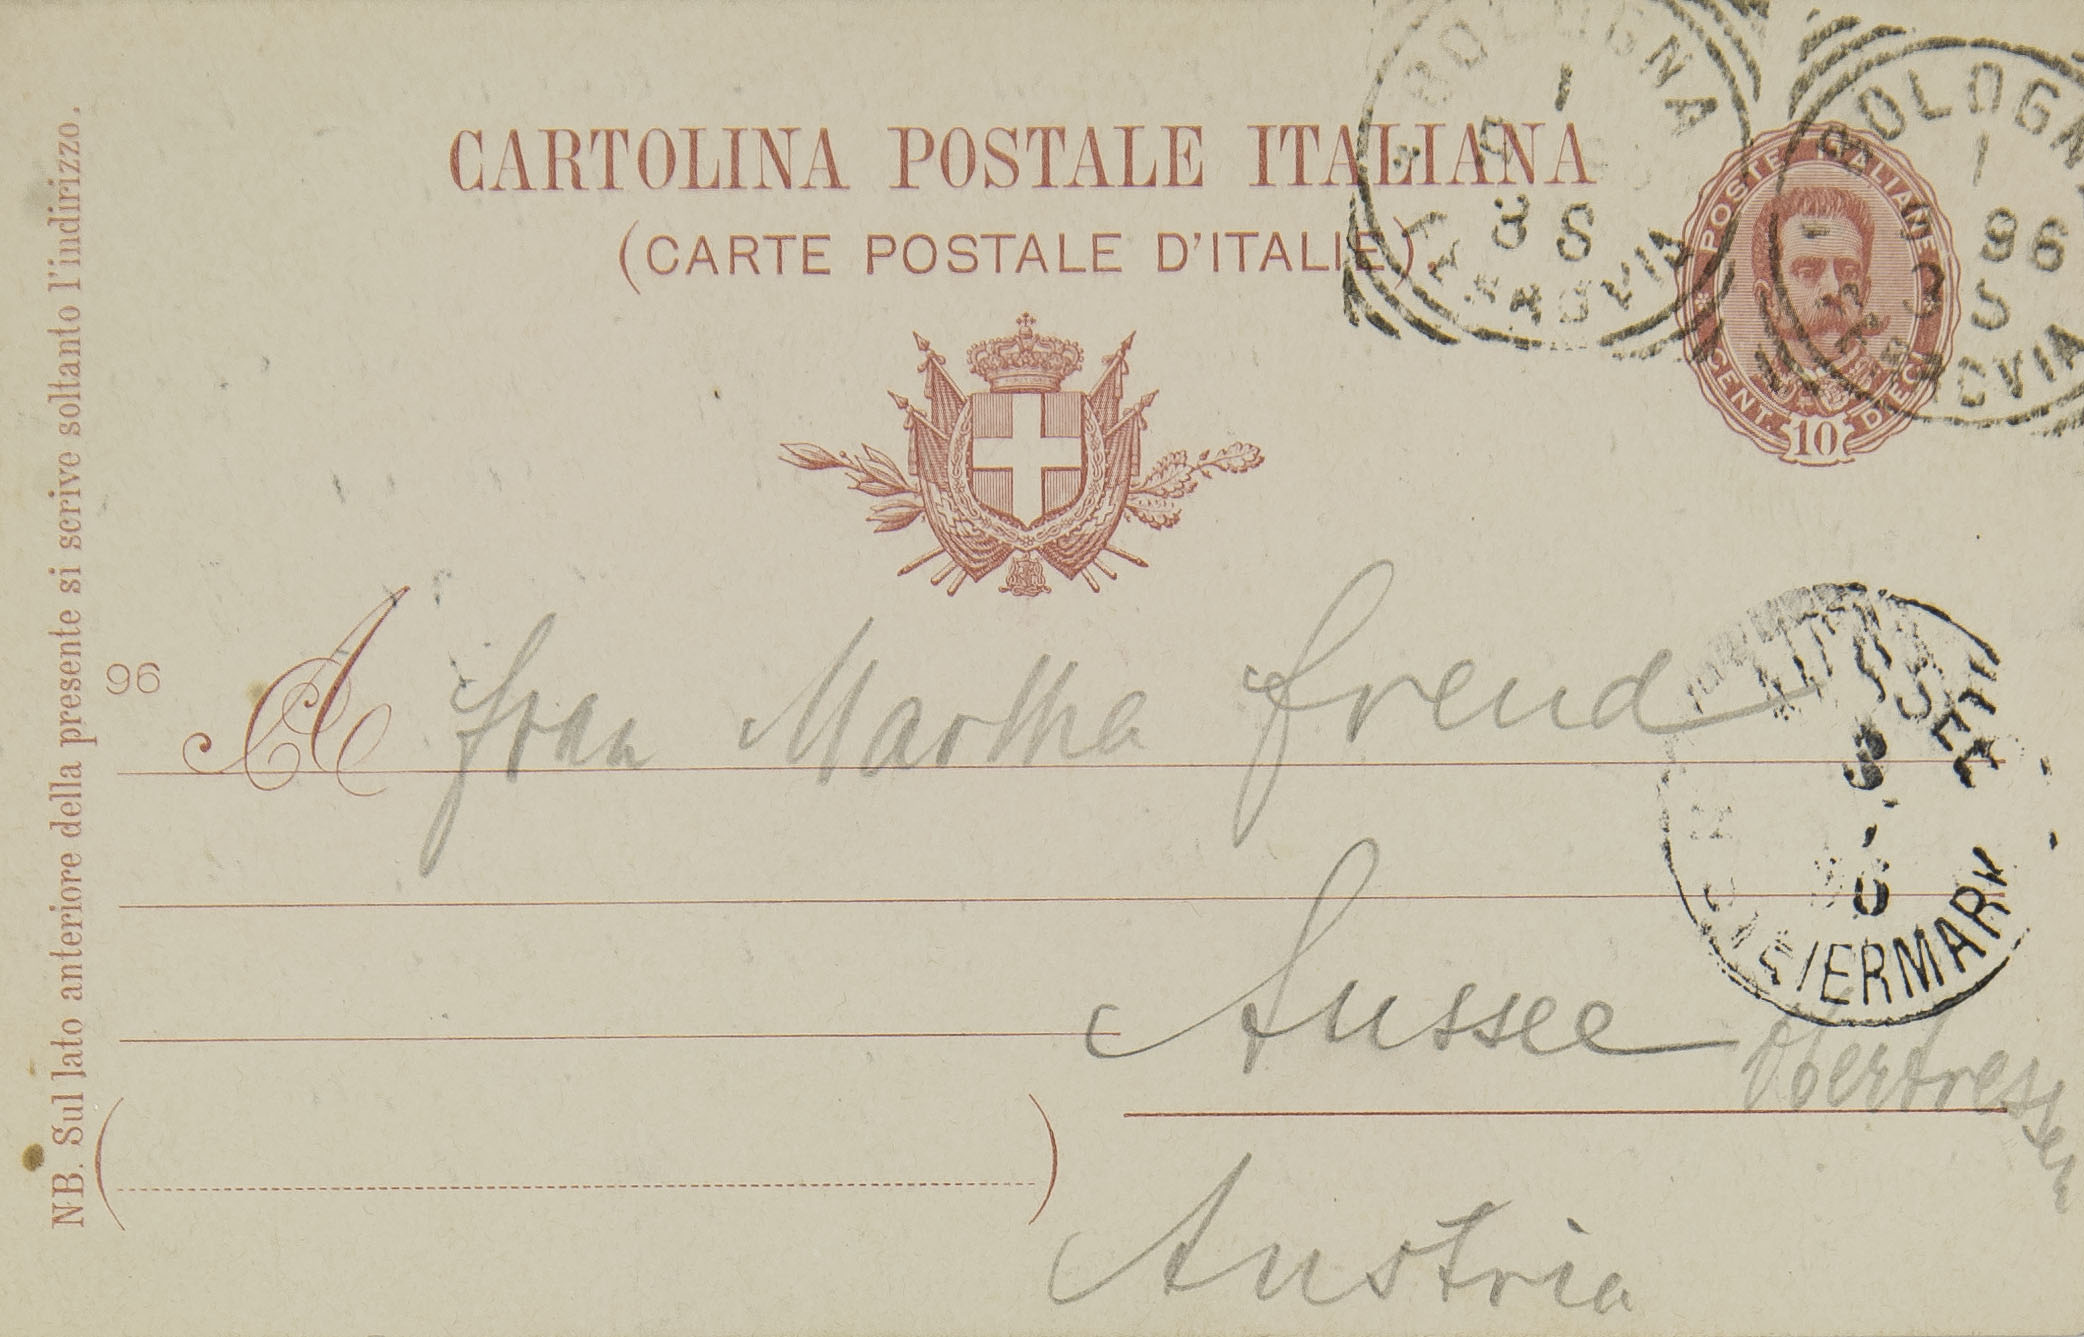 CARTOLINA POSTALE ITALIANA
(CARTE POSTALE D'ITALIE)
POSTE ITALIANE
CENT. 10 DIECI
BOLOGNA
1
FERROVIA
BOLOGNA
1
96
FERROVIA
NB. Sul lato anteriore della presente si scrive soltanto l'indirizzo.
96
A Frau Martha Freud
AUSSEE
STEIERMARK
Aussee Obertressen
Austria